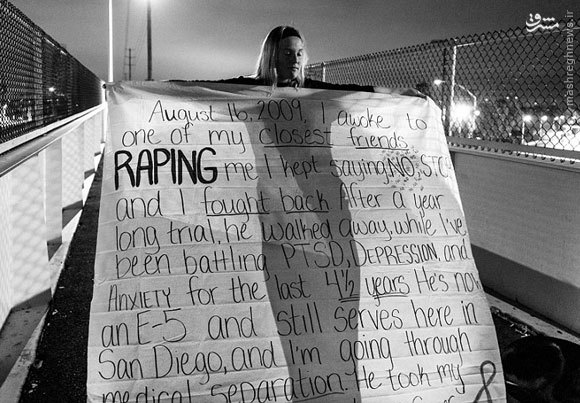 مشرق
mashreghnews.ir
August 16, 2009, I awoke to
one of my closest friends
RAPING me I kept saying, NO, STOP
and I fought back After a year
long trial, he walked away, while I've
been battling PTSD, DEPRESSION, and
ANXIETY for the last 4½ years He's now
an E-5 and still serves here in
San Diego, and I'm going through
medical separation. He took my